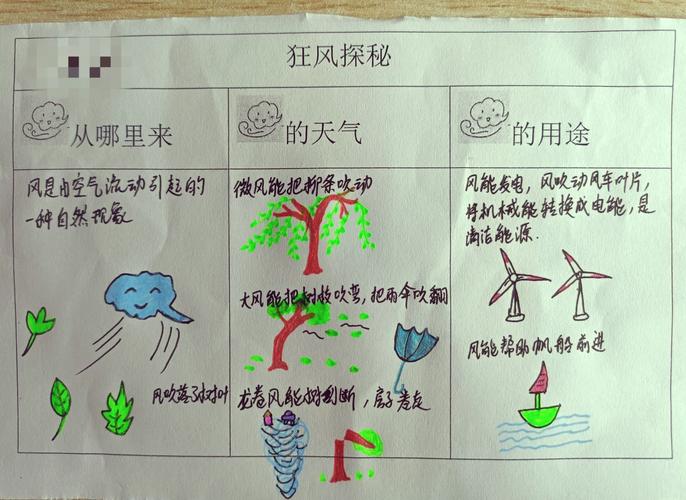 狂风探秘
从哪里来
的天气
的用途
风是由空气流动引起的
一种自然现象
风吹落了树叶
微风能把柳条吹动
大风能把树枝吹弯,把雨伞吹翻
龙卷风能树刮断,房子卷走
风能发电,风吹动风车叶片,
将机械能转换成电能,是
清洁能源.
风能帮助帆船前进